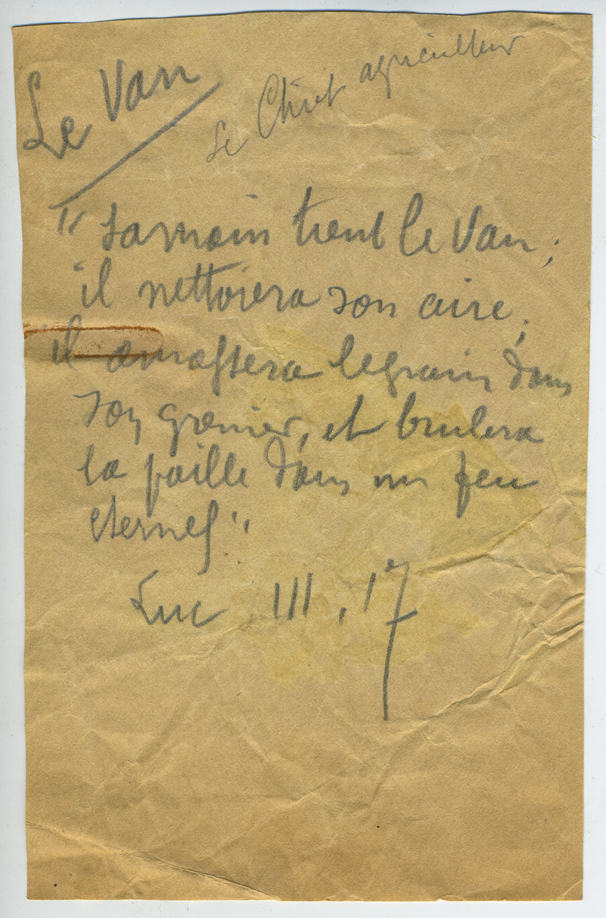 Le Van
Le Christ agriculteur
"sa main tient le Van;
il nettoiera son aire,
il amassera le grain dans
son grenier, et brulera
la paille dans un feu
eternel"
Luc III, 17